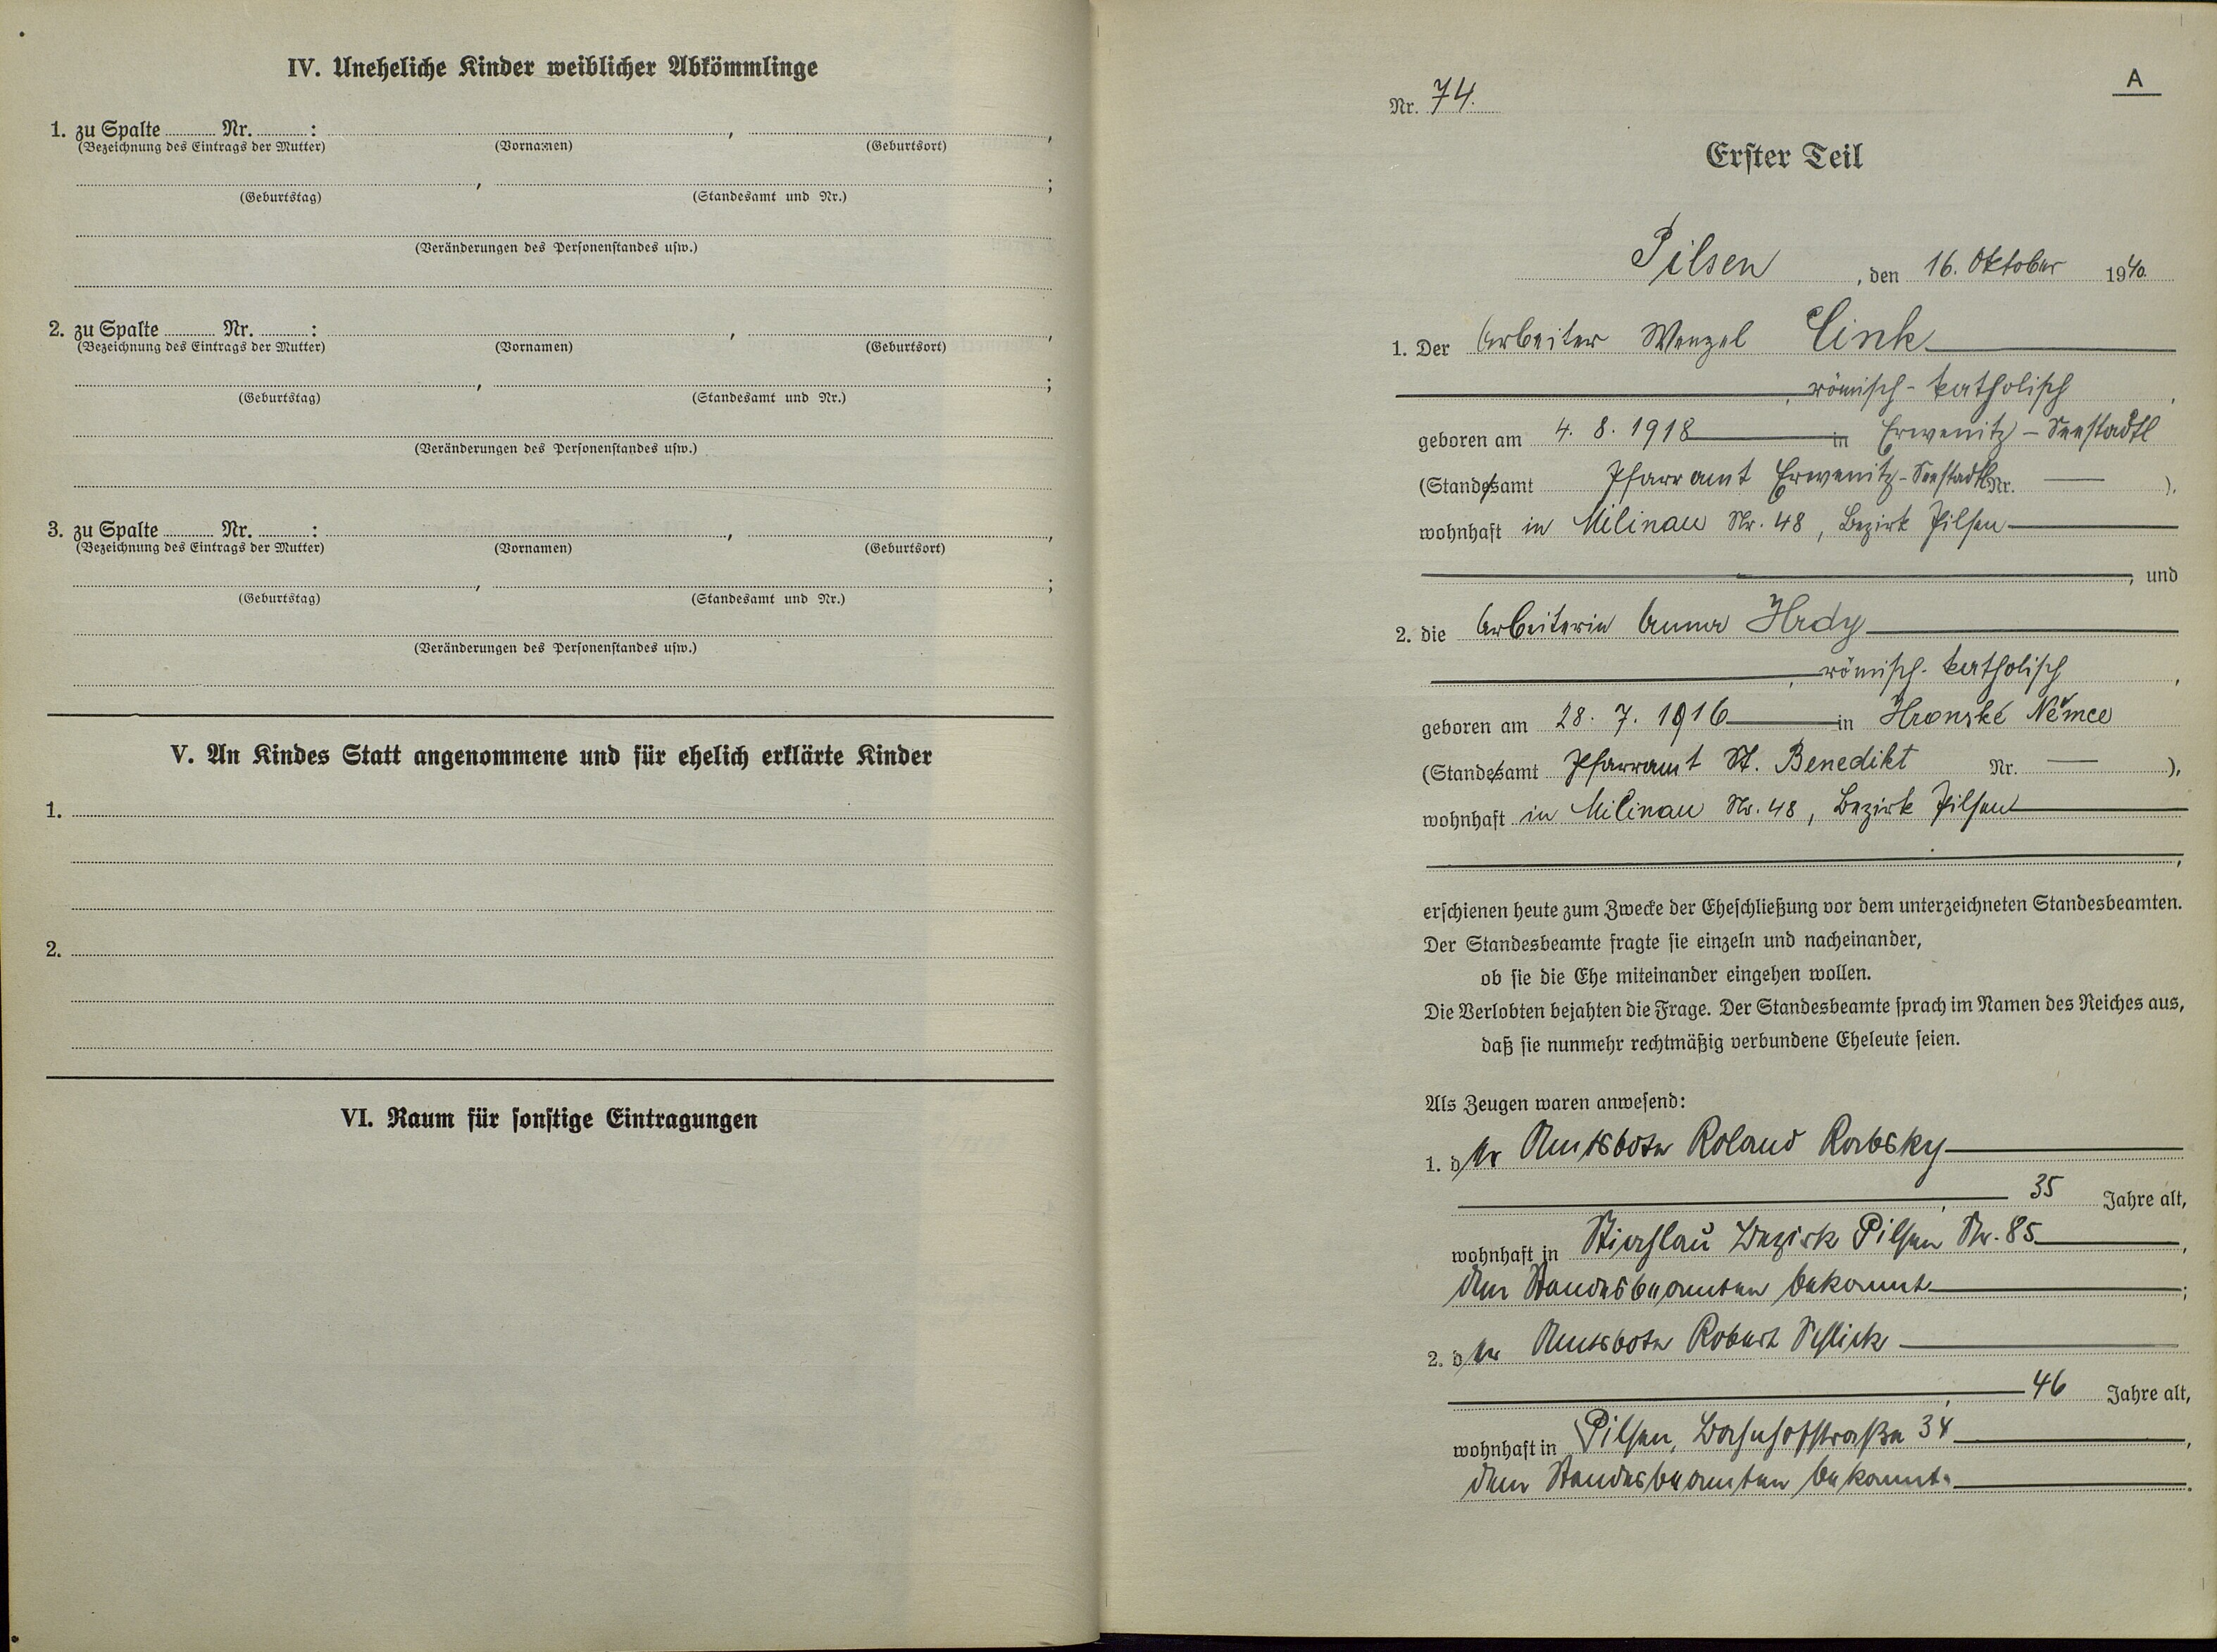 IV. Uneheliche Kinder weiblicher Abkömmlinge
1. zu Spalte ........ Nr. ........ : ........ , ........ ,
(Bezeichnung des Eintrags der Mutter) (Vornamen) (Geburtsort)
........ , ........ ;
(Geburtstag) (Standesamt und Nr.)
(Veränderungen des Personenstandes usw.)
2. zu Spalte ........ Nr. ........ : ........ , ........ ,
(Bezeichnung des Eintrags der Mutter) (Vornamen) (Geburtsort)
........ , ........ ;
(Geburtstag) (Standesamt und Nr.)
(Veränderungen des Personenstandes usw.)
3. zu Spalte ........ Nr. ........ : ........ , ........ ,
(Bezeichnung des Eintrags der Mutter) (Vornamen) (Geburtsort)
........ , ........ ;
(Geburtstag) (Standesamt und Nr.)
(Veränderungen des Personenstandes usw.)
V. An Kindes Statt angenommene und für ehelich erklärte Kinder
1.
2.
VI. Raum für sonstige Eintragungen
A
Nr. 74.
Erster Teil
Pilsen , den 16. Oktober 1940.
1. Der Arbeiter Wenzel Cink
, römisch-katholisch ,
geboren am 4. 8. 1918 in Erwenitz – Seestadtl
(Standesamt Pfarramt Erwenitz-Seestadtl Nr. — ),
wohnhaft in Milinau Nr. 48, Bezirk Pilsen
, und
2. die Arbeiterin Anna Hrdy
, römisch-katholisch ,
geboren am 28. 7. 1916 in Hronské Němce
(Standesamt Pfarramt St. Benedikt Nr. — ),
wohnhaft in Milinau Nr. 48, Bezirk Pilsen
,
erschienen heute zum Zwecke der Eheschließung vor dem unterzeichneten Standesbeamten.
Der Standesbeamte fragte sie einzeln und nacheinander,
ob sie die Ehe miteinander eingehen wollen.
Die Verlobten bejahten die Frage. Der Standesbeamte sprach im Namen des Reiches aus,
daß sie nunmehr rechtmäßig verbundene Eheleute seien.
Als Zeugen waren anwesend:
1. der Amtsbote Roland Rabsky
, 35 Jahre alt,
wohnhaft in Stiahlau Bezirk Pilsen Nr. 85 ,
dem Standesbeamten bekannt ;
2. der Amtsbote Robert Schlick
, 46 Jahre alt,
wohnhaft in Pilsen, Bahnhofstraße 34 ,
dem Standesbeamten bekannt.